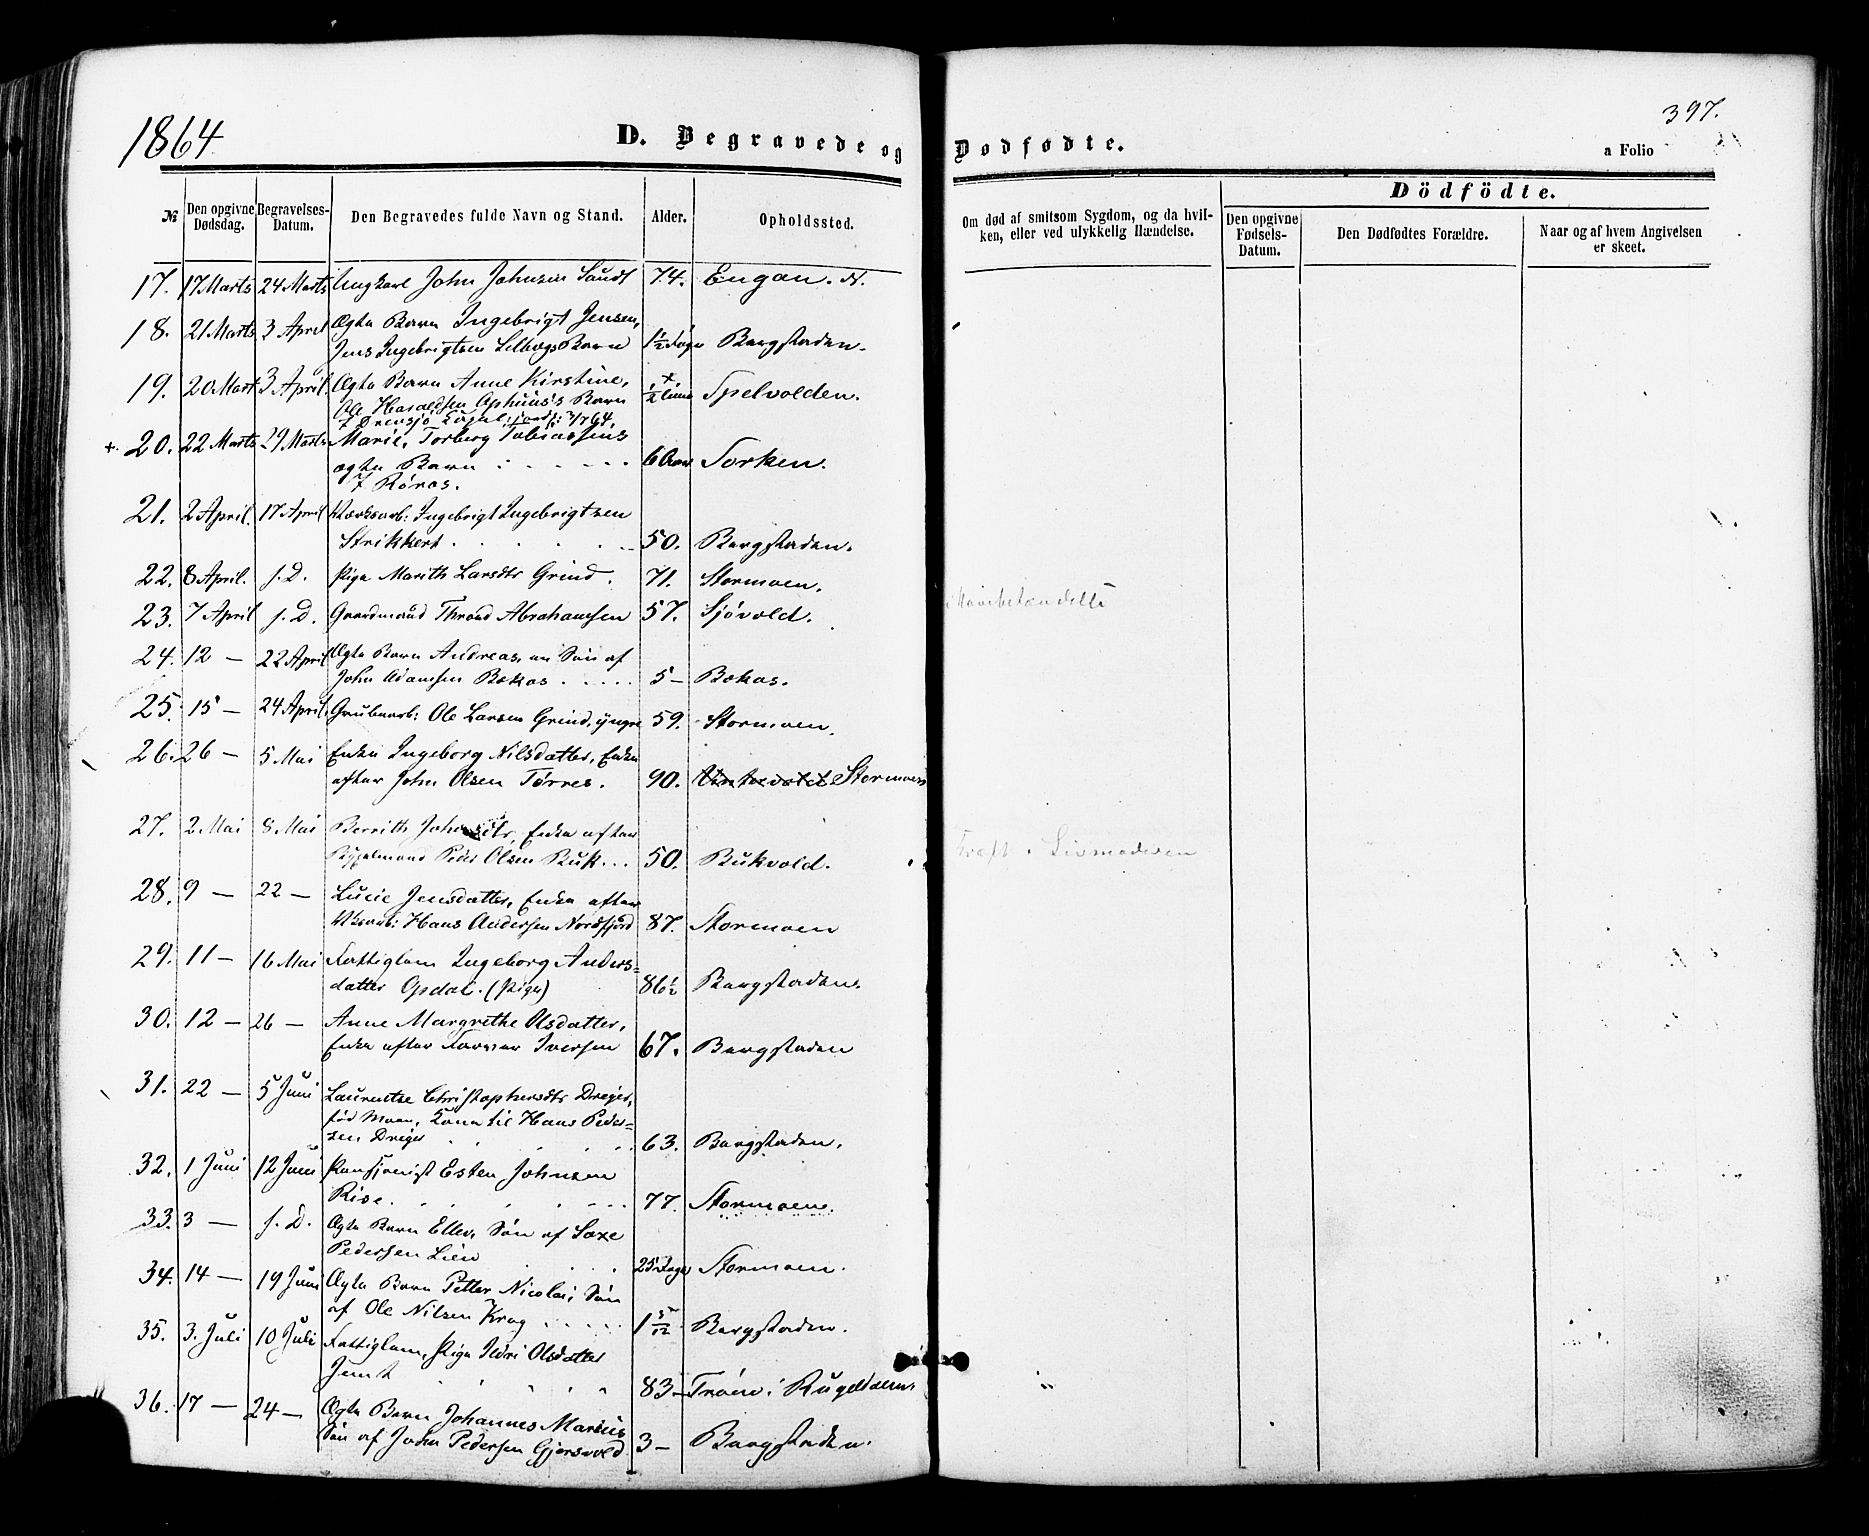 1864
D. Begravede og Dødfødte.
397.
a Folio
№ Den opgivne Dødsdag. Begravelses-Datum. Den Begravedes fulde Navn og Stand. Alder. Opholdssted.
Om død af smitsom Sygdom, og da hvil-
ken, eller ved ulykkelig Hændelse.
Dödfödte.
Den opgivne Fødsels-Datum. Den Dødfødtes Forældre. Naar og af hvem Angivelsen er skeet.
17. 17 Marts 24 Marts Ungkarl John Johnsen Sundt 74. Engan. N.
18. 21 Marts 3 April Ægte Barn Ingebrigt Jensen,
Jens Ingebrigtsen Barn 1½ Dage Bergstaden.
19. 20 Mart 3 April. Ægte Barn Anne Kirstine,
Ole Haraldsen Aphuus's Barn ½ Time Spelvolden.
+. 20. 22 Marts 29 Marts Marie, Torberg Tobiassens
ægte Barn 6 Aar Torken.
Røros.
21. 2 April. 17 April Værksarb: Ingebrigt Ingebrigtsen
Strikkert 50. Bergstaden.
22. 8 April. s. D. Pige Marith Larsdtr Grind. 71. Stormoen.
23. 7 April s. D. Gaardmand Thrond Abrahamsen 57. Sjövold.
24. 12 — 22 April Ægte Barn Andreas, en Søn af
John Adamsen Bekos 5 — Bekos.
25. 15 — 24 April. Grubearb: Ole Larsen Grind, yngre 59. Stormoen.
26. 26 — 5 Mai Enke Ingeborg Nilsdatter, Enke
efter John Olsen Tørres. 90. Stormoen
27. 2 Mai 8 Mai Berrith Enke efter
Peder Olsen Buk 50. Bukvold.
i Livmoderen
28. 9 — 22 — Lucie Jensdatter, Enke efter
Vksarb: Hans Andersen Nordfjord 87. Stormoen
29. 11 — 16 Mai Fattiglem Ingeborg Anders=
datter Opdal. (Pige) 86½ Bergstaden.
30. 12 — 26 — Anne Margrethe Olsdatter,
Enke efter Farver Iversen 67. Bergstaden
31. 22 — 5 Juni Laurentse Christophersdtr Dreyer,
fød Moen, Kone til Hans Peder=
sen Dreyer 63. Bergstaden.
32. 1 Juni 12 Juni Pensionist Esten Johnsen
Rise. 77. Stormoen.
33. 3 — s. D. Ægte Barn Ellev, Søn af Saxe
Pedersen Lien 25 Dage Stormoen.
34. 14 — 19 Juni Ægte Barn Petter Nicolai Søn
af Ole Nilsen Krog 1 5/12 Bergstaden.
35. 3. Juli 10 Juli Fattiglem, Pige Ildri Olsdatter
Jemt 83 — Trøen i Rugeldalen.
36. 17 — 24 — Ægte Barn Johannes Marius
Søn af John Pedersen Gjersvold 3 — Bergstaden.